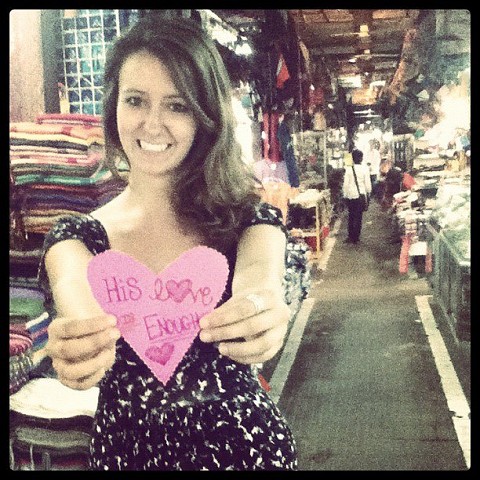 HiS love
IS ENOUGH